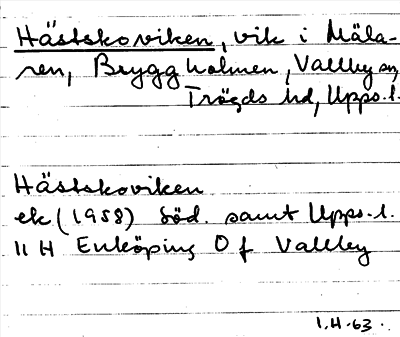 Hästskoviken, vik i Mäla-
ren, Bryggholmen, Vallby sn,
Trögds hd, Upps. l.
Hästskoviken
ek (1958) Söd. samt Upps. l.
11 H Enköping O f Vallby
1.H.63.